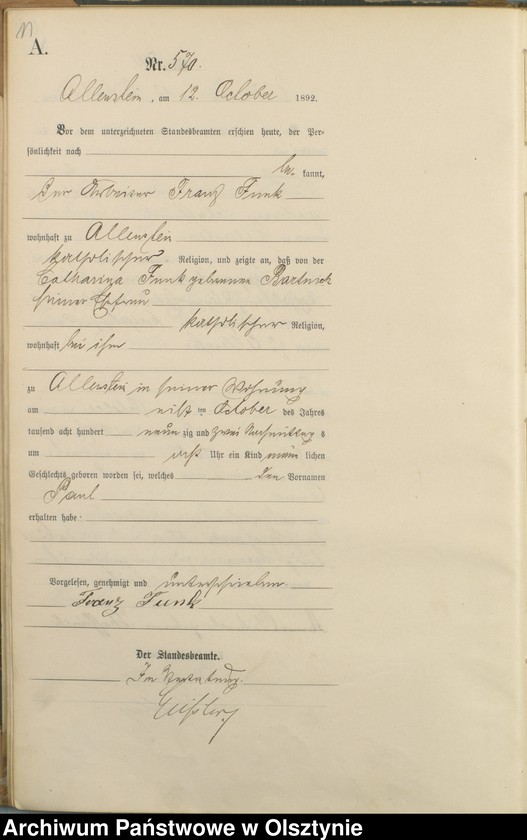 11
A.
Nr. 570.
Allenstein, am 12. October 1892.
Vor dem unterzeichneten Standesbeamten erschien heute, der Per-
sönlichkeit nach
be kannt,
der Arbeiter Franz Funk
wohnhaft zu Allenstein
katholischer Religion, und zeigte an, daß von der
Catharina Funk geborenen Bartnick
seiner Ehefrau
katholischer Religion,
wohnhaft bei ihm
zu Allenstein in seiner Wohnung
am elften October des Jahres
tausend acht hundert neun zig und zwei Nachmittag s
um acht Uhr ein Kind männ lichen
Geschlechts geboren worden sei, welches den Vornamen
Paul
erhalten habe.
Vorgelesen, genehmigt und unterschrieben
Franz Funk
Der Standesbeamte.
In Vertretung.
Archiwum Państwowe w Olsztynie